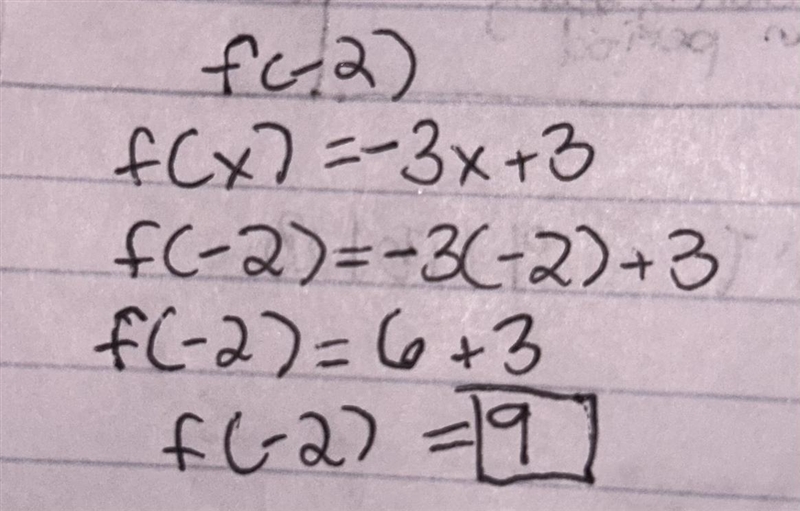 f(-2)
f(x) = -3x + 3
f(-2) = -3(-2) + 3
f(-2) = 6 + 3
f(-2) = 9